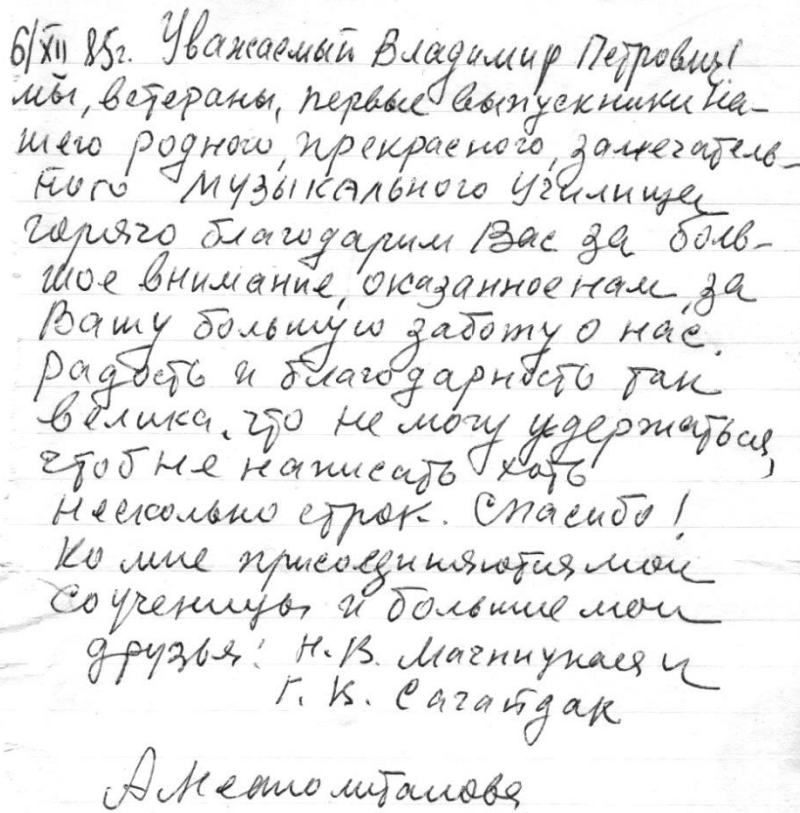 6/XII 85г. Уважаемый Владимир Петрович!
мы, ветераны, первые выпускники на-
шего родного, прекрасного, замечатель-
ного музыкального училища
горячо благодарим Вас за боль-
шое внимание, оказанное нам, за
Вашу большую заботу о нас.
Радость и благодарность так
велика, что не могу удержаться,
чтоб не написать хоть
несколько строк. Спасибо!
Ко мне присоединяются мои
соученицы и большие мои
друзья: Н. В. и
Г. К. Сагайдак
А